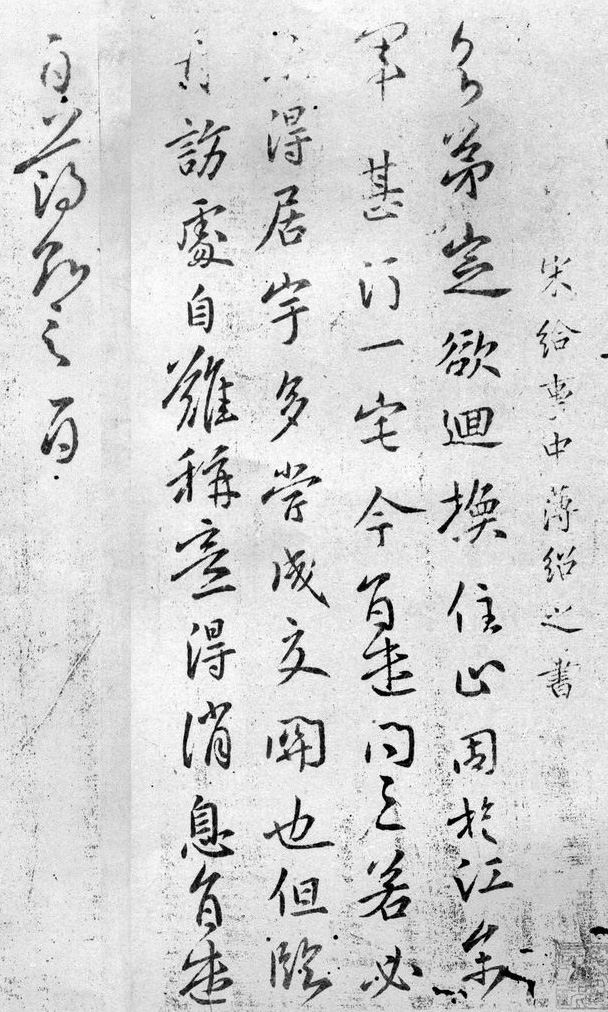 宋給事中薄紹之書
弟定欲迴換住止因於江東
一宅今遣問之若必
得居宇多嘗成交關也但臨
訪處自難稱意得消息遣
白薄紹之白